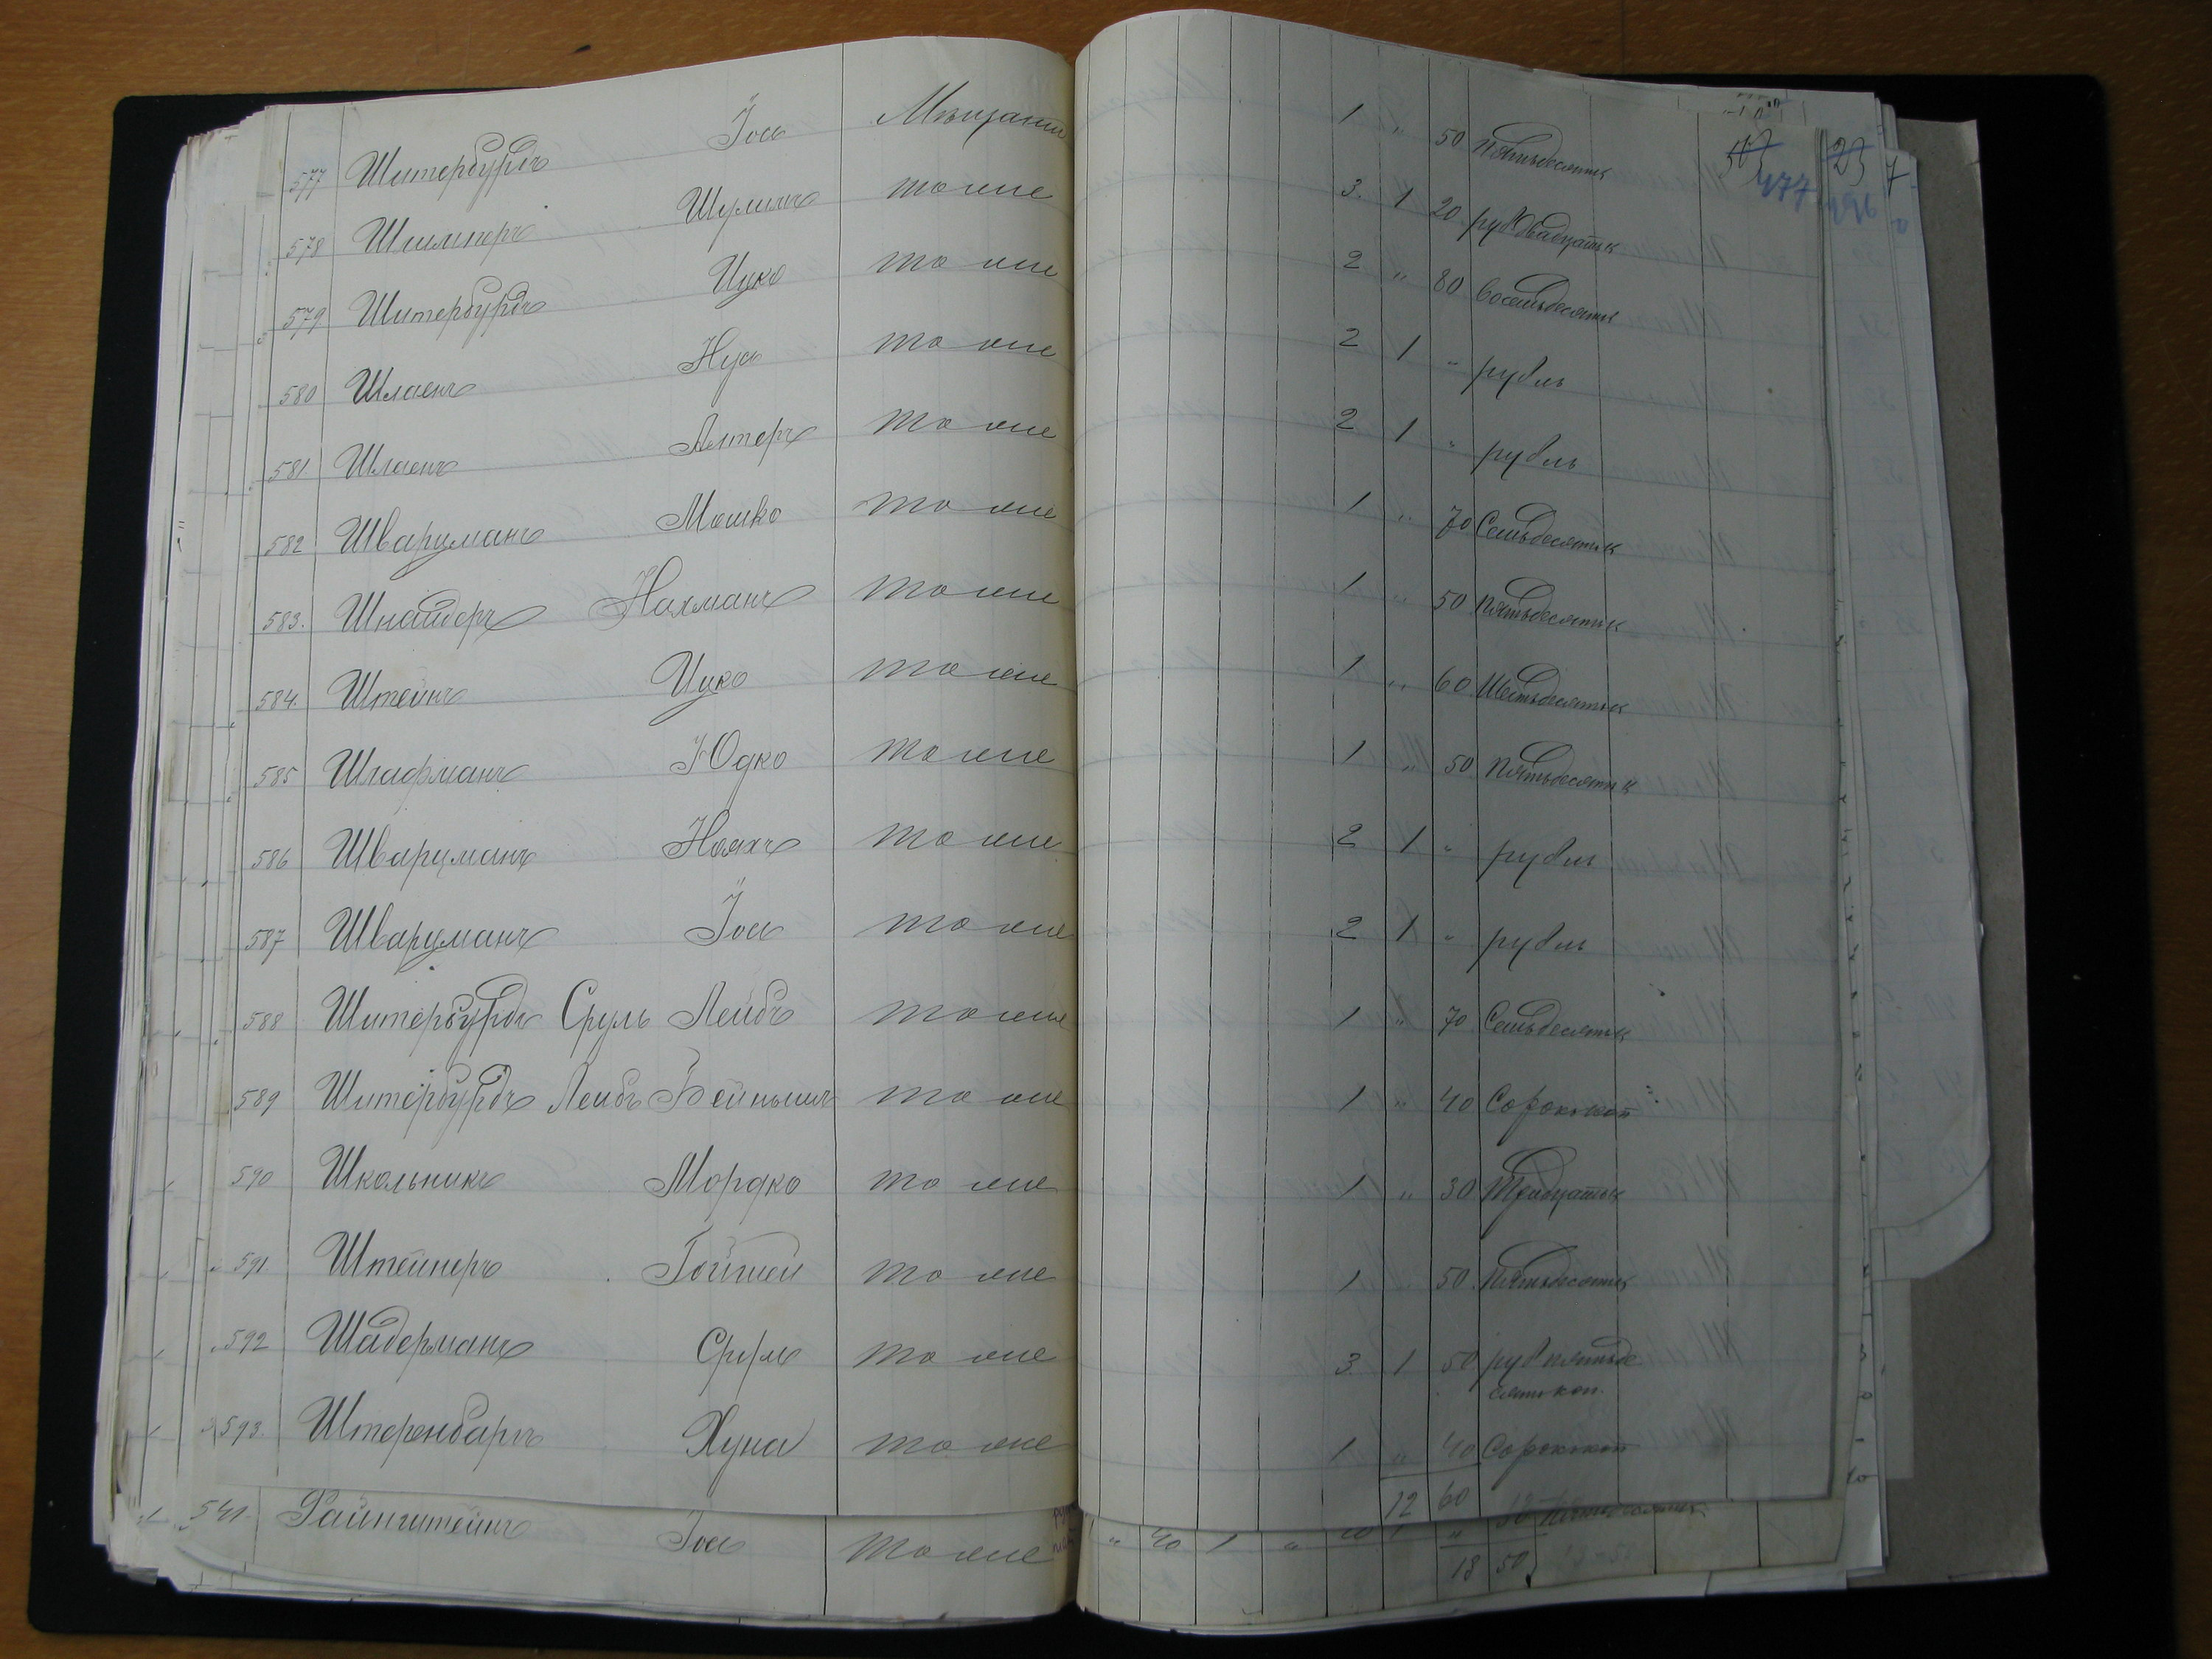 577 Шитербурдъ Іось Мѣщанинъ 1 " 50 пятьдесятъ к
578 Шимперъ Шулимъ тоже 3. 1 20 руб двадцать к
579 Шитербурдъ Ицко тоже 2 " 80 восемьдесятъ к
580 Шлаенъ Нусь тоже 2 1 " рубль
581 Шлаенъ Алтеръ тоже 2 1 " рубль
582 Шварцманъ Мошко тоже 1 " 70 Семьдесятъ к
583. Шнайдеръ Нахманъ тоже 1 " 50 пятьдесятъ к
584. Штейнъ Ицко тоже 1 " 60 Шестьдесятъ к
585 Шлафманъ Юдко тоже 1 " 50 пятьдесятъ к
586 Шварцманъ Нояхъ тоже 2 1 " рубль
587 Шварцманъ Іось тоже 2 1 " рубль
588 Шитербурдъ Сруль Лейбъ тоже 1 " 70 Семьдесятъ к
589 Шитербурдъ Лейбъ Бейнышъ тоже 1 " 40 Сорокъ коп
590 Школьникъ Мордко тоже 1 " 30 Тридцать к
591 Штейнеръ тоже 1 " 50 пятьдесятъ к
592 Шадерманъ Сруль тоже 3. 1 50 руб пятьде
сятъ коп.
593 Штеренбаргъ Хуна тоже 1 " 40 Сорокъ коп
12 60
541 Файнштейнъ Іось тоже " 40 1 "
18 50
477
23
7